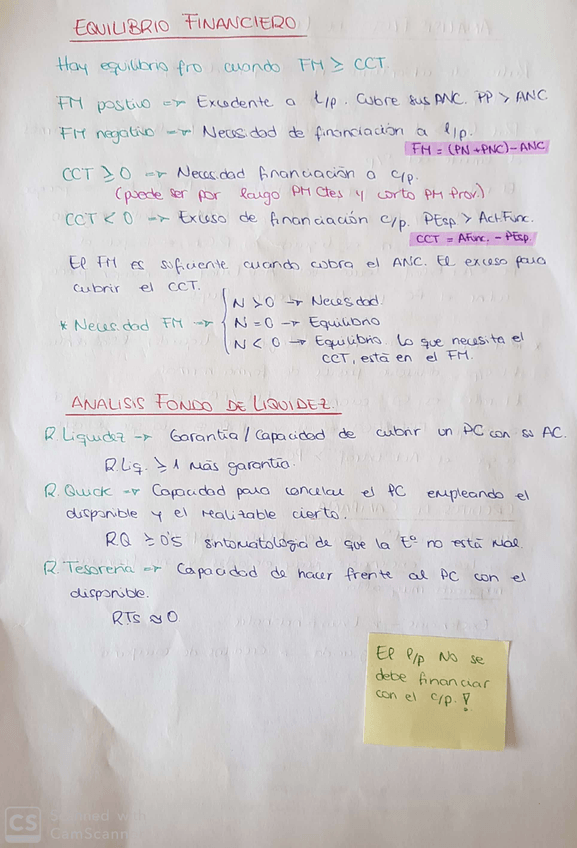 EQUILIBRIO FINANCIERO
Hay equilibrio fro cuando FM ≥ CCT
FM positivo → Excedente a l/p. Cubre sus ANC. PP > ANC
FM negativo → Necesidad de financiación a l/p.
FM = (PN + PNC) - ANC
CCT ≥ 0 → Necesidad financiación a c/p.
(puede ser por largo PM Ctes y corto PM Prov.)
CCT < 0 → Exceso de financiación c/p. PEsp > Act.Func.
CCT = AFunc. - PEsp.
El FM es suficiente cuando cubra el ANC. El exceso para
cubrir el CCT.
* Necesidad FM → { N > 0 → Necesidad.
N = 0 → Equilibrio
N < 0 → Equilibrio. Lo que necesita el
CCT, está en el FM.
ANALISIS FONDO DE LIQUIDEZ.
R. Liquidez → Garantía / Capacidad de cubrir un PC con su AC.
R.Liq. ≥ 1 más garantía.
R. Quick → Capacidad para cancelar el PC empleando el
disponible y el realizable cierto.
RQ ≥ 0'5 sintomatologia de que la Eª no está mal.
R. Tesorería → Capacidad de hacer frente al PC con el
disponible.
RTs ≈ 0
El l/p NO se
debe financiar
con el c/p.!
CS Scanned with
CamScanner